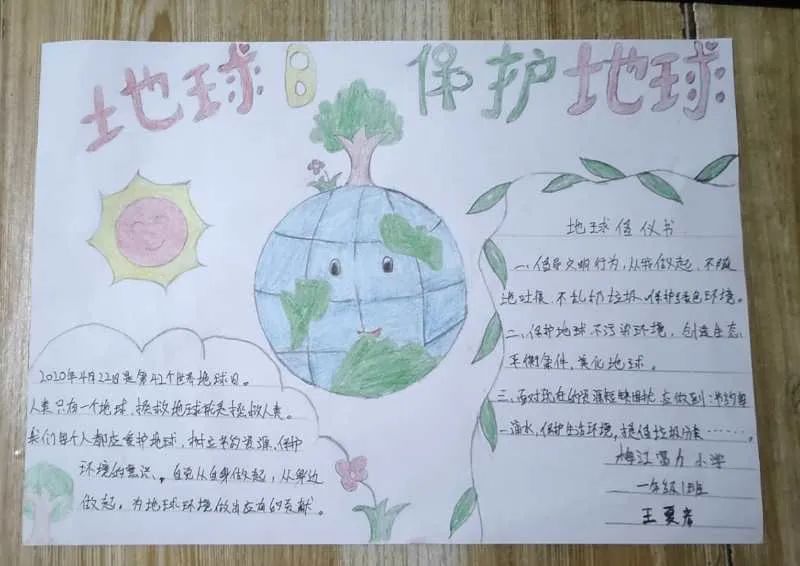 地球日 保护地球
2020年4月22日是第42个世界地球日。
人类只有一个地球，拯救地球就是拯救人类。
我们每个人都应爱护地球，树立节约资源、保护
环境的意识、。自觉从自身做起，从身边
做起，为地球环境做出应有的贡献。
地球倡仪书
一、倡导文明行为，从我做起，不随
地吐痰、不乱扔垃圾、保护绿色环境。
二、保护地球不污染环境，创造生态
平衡条件，美化地球。
三、面对现在的资源短缺困扰，应做到：节约每
一滴水，保护生活环境，提倡垃圾分类……。
小学
一年级1班
王夏